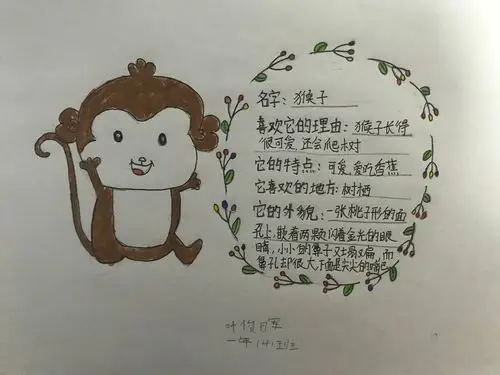 名字：猴子
喜欢它的理由：猴子长得
很可爱，还会爬树
它的特点：可爱，爱吃香蕉
它喜欢的地方：树栖
它的外貌：一张桃子形的面
孔上，嵌着两颗闪着金光的眼
睛，小小的鼻子又塌又扁，而
鼻孔却很大，下面是尖尖的嘴巴
一年